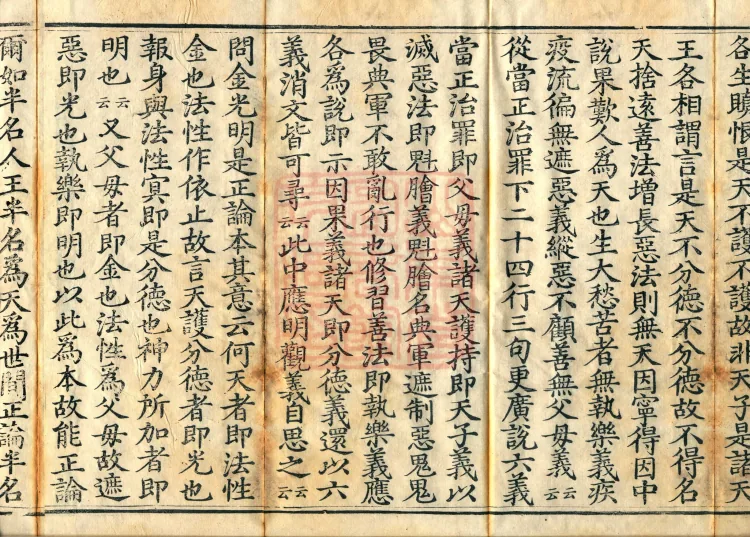 名生瞋恨是天不護不護故非天子是諸天
王各相謂言是天不分德不分德故不得名
天捨遠善法增長惡法則無天因寧得因中
說果歎人為天也生大愁苦者無執樂義疾
疫流徧無遮惡義縱惡不顧善無父母義云云
從當正治罪下二十四行三句更廣說六義
當正治罪即父母義諸天護持即天子義以
滅惡法即魁膾義魁膾名典軍遮制惡鬼鬼
畏典軍不敢亂行也修習善法即執樂義應
各為說即示因果義諸天即分德義還以六
義消文皆可尋云云此中應明觀義自思之云云
問金光明是正論本其意云何天者即法性
金也法性作依止故言天護分德者即光也
報身與法性冥即是分德也神力所加者即
明也云云又父母者即金也法性為父母故遮
惡即光也執樂即明也以此為本故能正論
爾如半名人王半名為天為世間正論半名